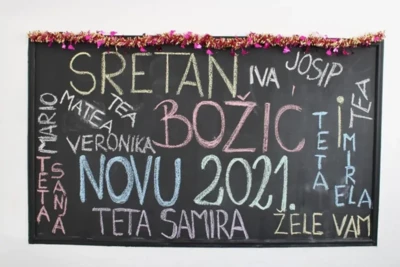 SRETAN
IVA
JOSIP
TEA
MARIO
MATEA
TEA
VERONIKA
BOŽIĆ
i
TETA
MIRELA
TETA
SANJA
NOVU 2021.
TETA SAMIRA
ŽELE VAM